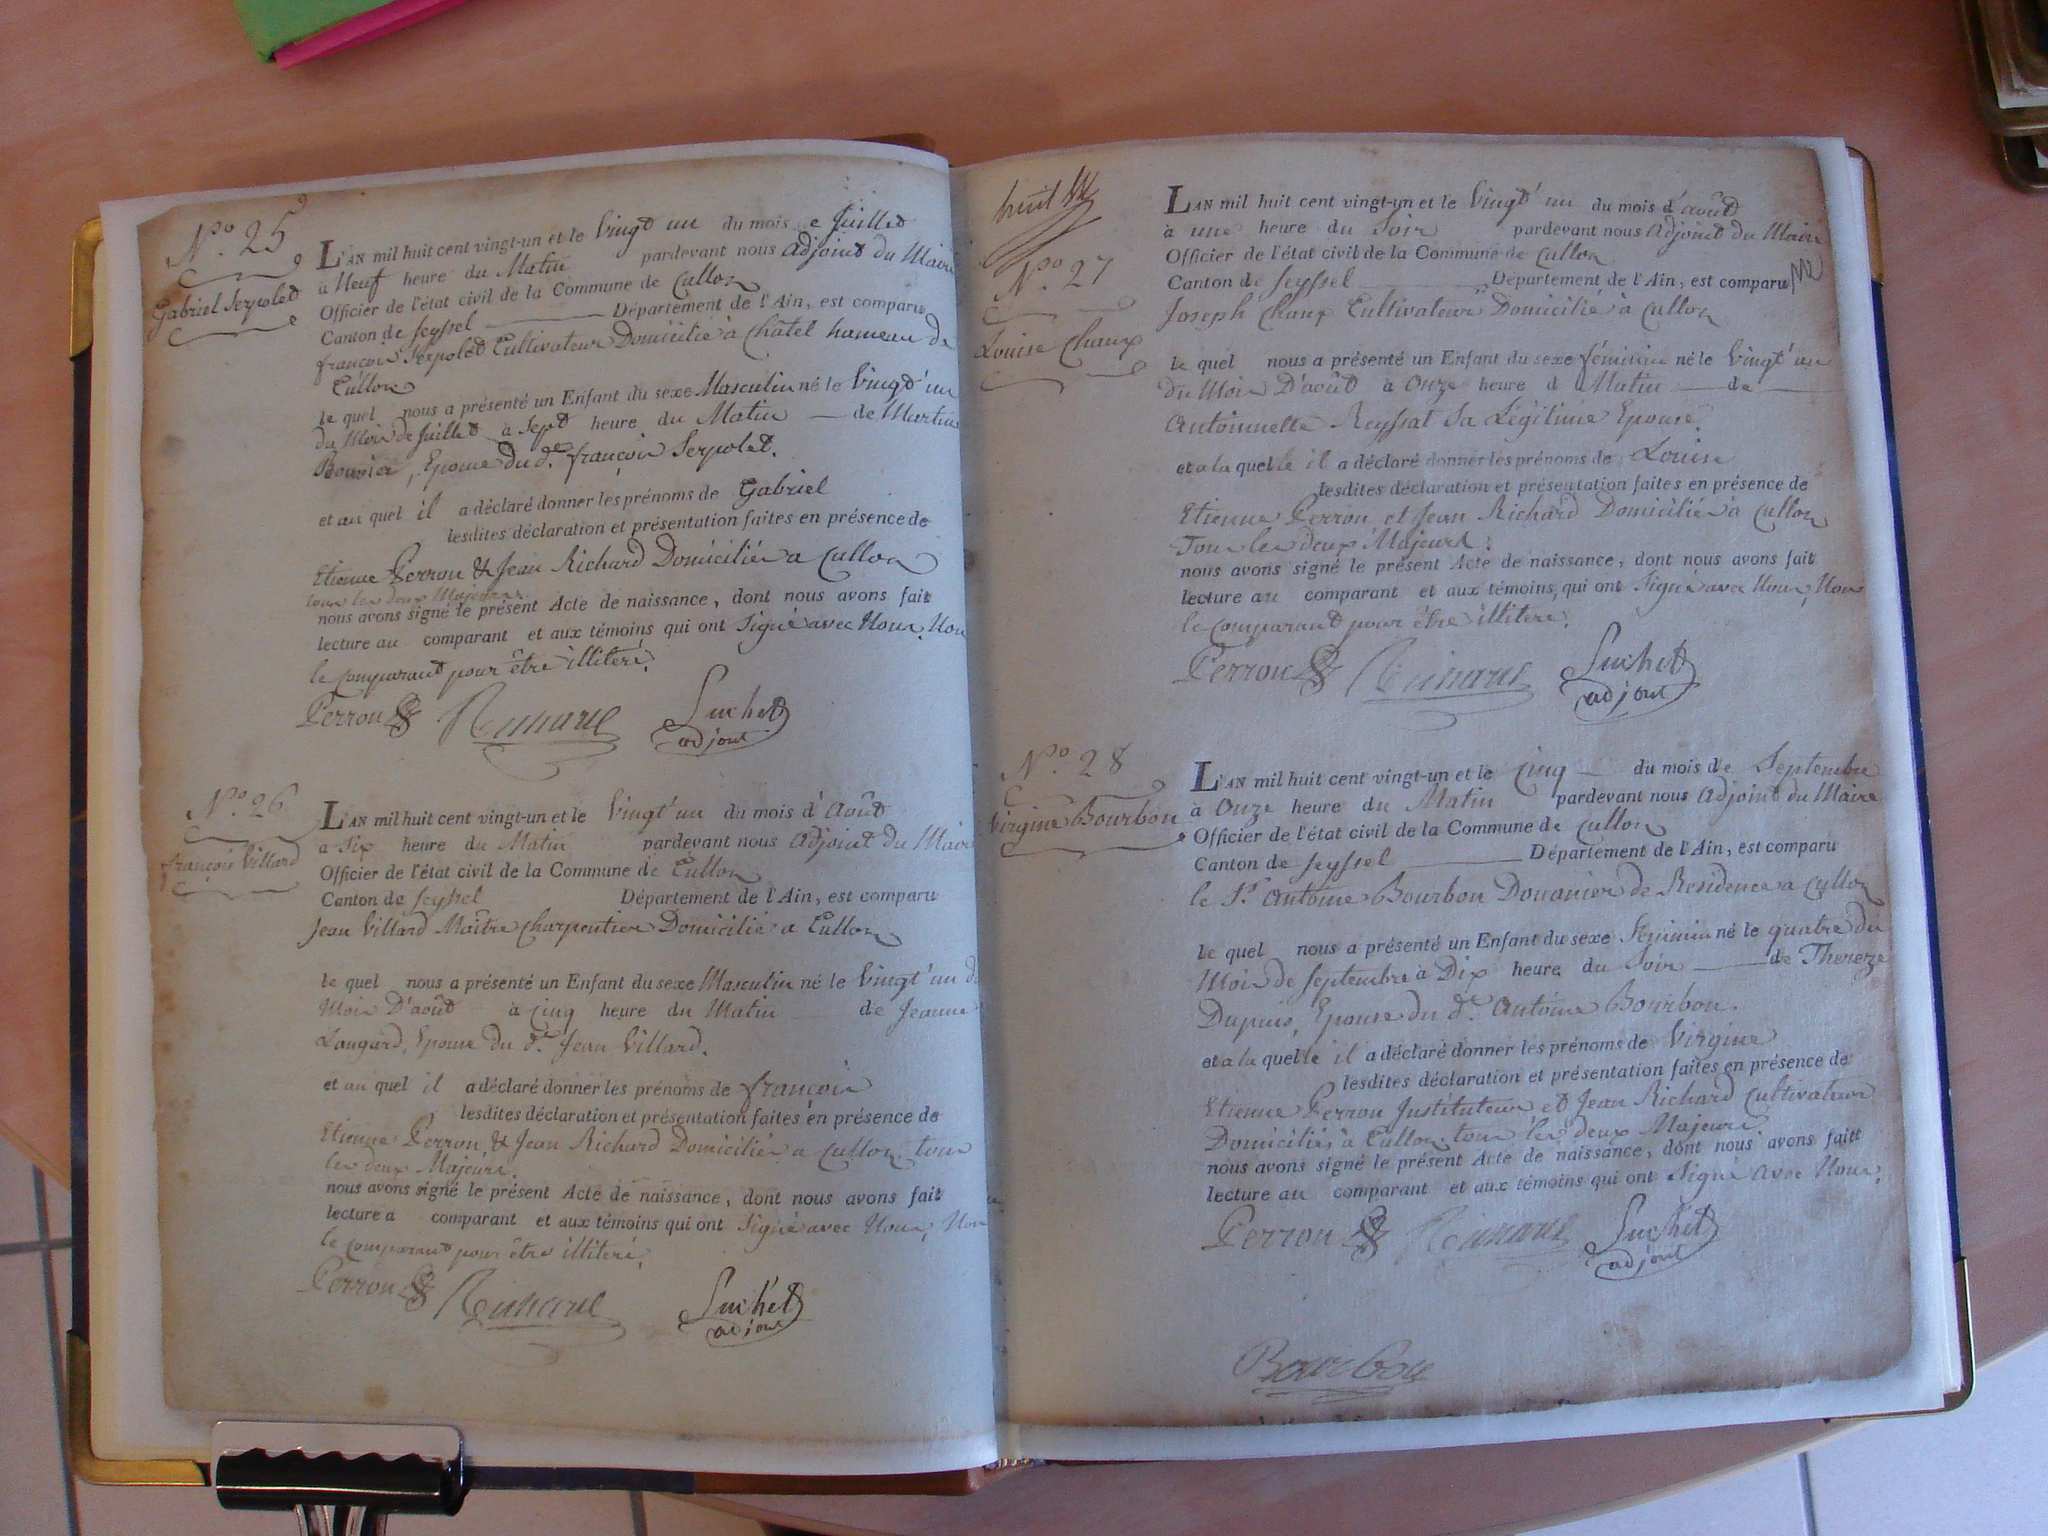 N.º 25
Gabriel Serpolet
L'AN mil huit cent vingt-un et le Vingt un du mois de Juillet
à Neuf heure du Matin pardevant nous adjoint du Maire
Officier de l'état civil de la Commune de Culloz
Canton de Seyssel Département de l'Ain, est comparu
françois Serpolet Cultivateur Domicilié à Châtel hameau de
Culloz
le quel nous a présenté un Enfant du sexe Masculin né le Vingt'un
du Mois de Juillet à Sept heure du Matin de Martine
Bouvier, Epouse du d.t françois Serpolet.
et au quel il a déclaré donner les prénoms de Gabriel
lesdites déclaration et présentation faites en présence de
Etienne Perron & Jean Richard Domiciliés a Culloz
tous les deux Majeurs.
nous avons signé le présent Acte de naissance, dont nous avons fait
lecture au comparant et aux témoins qui ont Signé avec Nous, Non
le comparant pour être illiteré.
Perron Richard Suchet
adjoint
N.º 26
françois Villard
L'AN mil huit cent vingt-un et le Vingt'un du mois d'Août
a Six heure du Matin pardevant nous adjoint du Maire
Officier de l'état civil de la Commune de Culloz
Canton de Seyssel Département de l'Ain, est comparu
Jean Villard Maître charpentier Domicilié a Culloz
le quel nous a présenté un Enfant du sexe Masculin né le Vingt'un du
Mois D'août à Cinq heure du Matin de Jeanne
Longard, Epouse du d.t Jean Villard.
et au quel il a déclaré donner les prénoms de françois
lesdites déclaration et présentation faites en présence de
Etienne Perron, & Jean Richard Domiciliés a Culloz, tous
les deux Majeurs.
nous avons signé le présent Acte de naissance, dont nous avons fait
lecture a comparant et aux témoins qui ont Signé avec Nous, Non
le comparant pour être illiteré.
Perron Richard Suchet
adjoint
huit
N.º 27
Louise Chaux
L'AN mil huit cent vingt-un et le Vingt'un du mois d'août
à une heure du Soir pardevant nous Adjoint du Maire
Officier de l'état civil de la Commune de Culloz
Canton de Seyssel Département de l'Ain, est comparu
Joseph Chaux Cultivateur Domicilié à Culloz
le quel nous a présenté un Enfant du sexe féminin né le Vingt'un
du Mois D'août à Onze heure d Matin de
Antoinnette Reyssat Sa Légitime Epouse.
et a la quelle il a déclaré donner les prénoms de Louise
lesdites déclaration et présentation faites en présence de
Etienne Perron et Jean Richard Domiciliés à Culloz
Tous les deux Majeurs.
nous avons signé le présent Acte de naissance, dont nous avons fait
lecture au comparant et aux témoins, qui ont Signé avec Nous, Non
le Comparant pour être illiteré.
Perron Richard Suchet
adjoint
N.º 28
Virgine Bourbon
L'AN mil huit cent vingt-un et le cinq du mois de Septembre
à Onze heure du Matin pardevant nous adjoint du Maire
Officier de l'état civil de la Commune de Culloz
Canton de Seyssel Département de l'Ain, est comparu
le S.r Antoine Bourbon Douanier de Residence a Culloz
le quel nous a présenté un Enfant du sexe féminin né le quatre du
Mois de Septembre à Dix heure du Soir de Thereze
Dupuis, Epouse du d.t Antoine Bourbon.
et a la quelle il a déclaré donner les prénoms de Virgine
lesdites déclaration et présentation faites en présence de
Etienne Perron Instituteur et Jean Richard Cultivateur
Domiciliés à Culloz, tous les deux Majeurs
nous avons signé le présent Acte de naissance, dont nous avons fait
lecture au comparant et aux témoins qui ont Signé avec Nous,
Perron Richard Suchet
adjoint
Bourbon